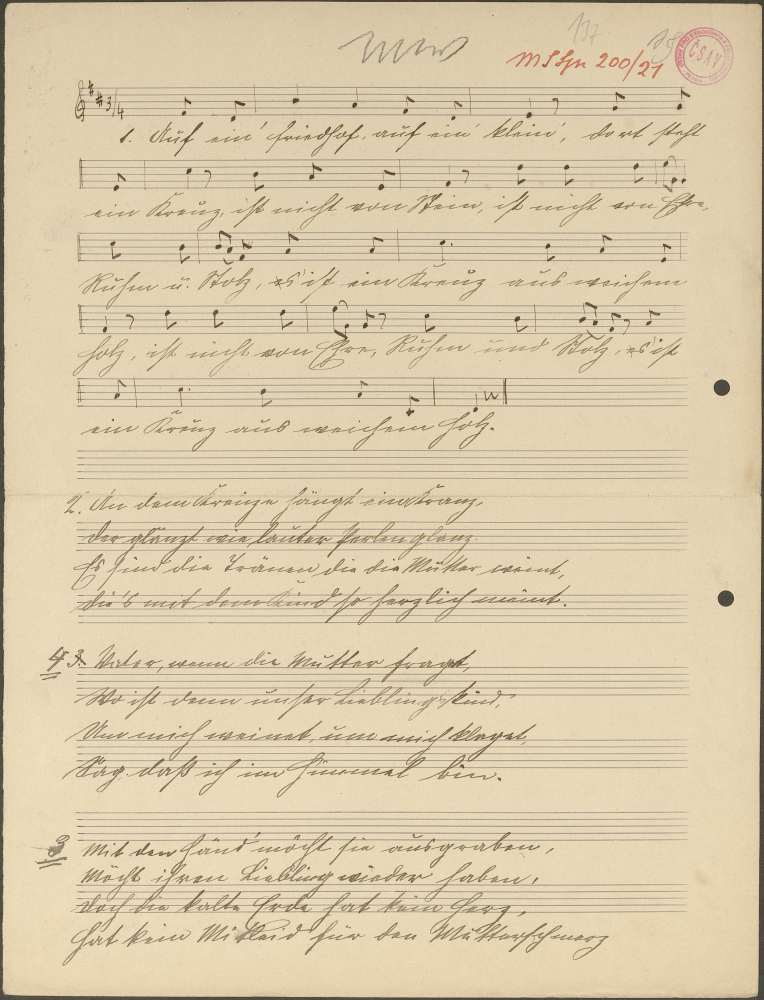 137
MS Spn 200/21
ČSAV
3/4
1. Auf ein' Friedhof, auf ein' klein', dort steht
ein Kreuz, ist nicht von Stein, ist nicht von Ehre,
Ruhm u. Stolz, es ist ein Kreuz aus weichem
Holz, ist nicht von Ehre, Ruhm und Stolz, es ist
ein Kreuz aus weichem Holz.
2. An dem Kreuze hängt ein Kranz,
der glänzt wie lauter Perlenglanz.
Es sind die Tränen die die Mutter weint,
die's mit dem Kind so herzlich meint.
4 3. Vater, wenn die Mutter fraget,
Wo ist denn unser Lieblingskind,
Um mich weinet, um mich klaget,
Sag, daß ich im Himmel bin.
3 Mit den Händ' möcht sie ausgraben,
Möcht ihren Liebling wieder haben,
Doch die kalte Erde hat kein Herz,
Hat kein Mitleid für den Mutterschmerz